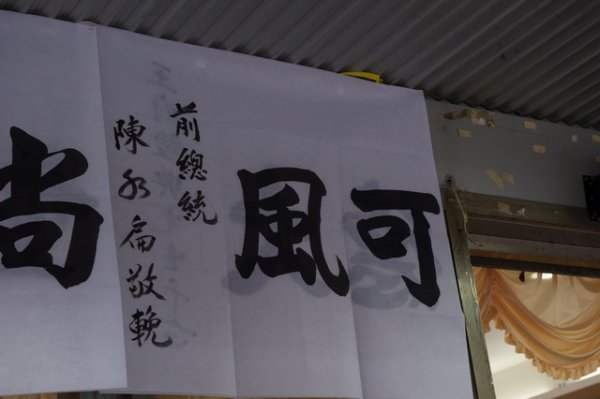 可風
前總統
陳水扁敬輓
尚